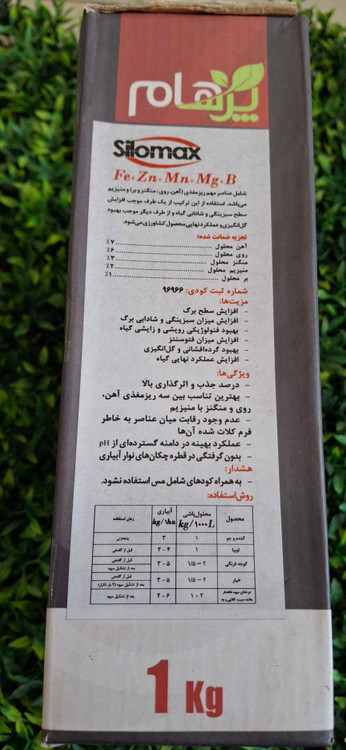 پرهام
Silomax
Fe+Zn+Mn+Mg+B
شامل عناصر مهم ریزمغذی (آهن، روی، منگنز و بر) و منیزیم
می‌باشد. استفاده از این ترکیب از یک طرف موجب افزایش
سطح سبزینگی و شادابی گیاه و از طرف دیگر موجب بهبود
گل‌انگیزی و عملکرد نهایی محصول کشاورزی می‌شود.
تجزیه ضمانت شده:
آهن محلول ٪۷
روی محلول ٪۶
منگنز محلول ٪۳
منیزیم محلول ٪۲
بر محلول ٪۱
شماره ثبت کودی: ۹۶۹۶۶
مزیت‌ها:
- افزایش سطح برگ
- افزایش میزان سبزینگی و شادابی برگ
- بهبود فنولوژیکی رویشی و زایشی گیاه
- افزایش میزان فتوسنتز
- بهبود گرده‌افشانی و گل‌انگیزی
- افزایش عملکرد نهایی گیاه
ویژگی‌ها:
- درصد جذب و اثرگذاری بالا
- بهترین تناسب بین سه ریزمغذی آهن،
روی و منگنز با منیزیم
- عدم وجود رقابت میان عناصر به خاطر
فرم کلات شده آن‌ها
- عملکرد بهینه در دامنه گسترده‌ای از pH
- بدون گرفتگی در قطره چکان‌های نوار آبیاری
هشدار:
- به همراه کودهای شامل مس استفاده نشود.
روش استفاده:
محصول محلول‌پاشی kg/۱۰۰۰L آبیاری kg/ha زمان استفاده
گندم و جو ۱ ۳ پنجه‌زنی
لوبیا ۱ ۳-۴ قبل از گلدهی
گوجه فرنگی ۱/۵-۲ ۳-۵ قبل از گلدهی
بعد از تشکیل میوه
خیار ۱/۵-۲ ۳-۵ قبل از گلدهی
بعد از تشکیل میوه
درختان میوه دانه‌دار ۱-۲ ۴-۶ بعد از تشکیل میوه
مانند سیب، گلابی و به
1 Kg